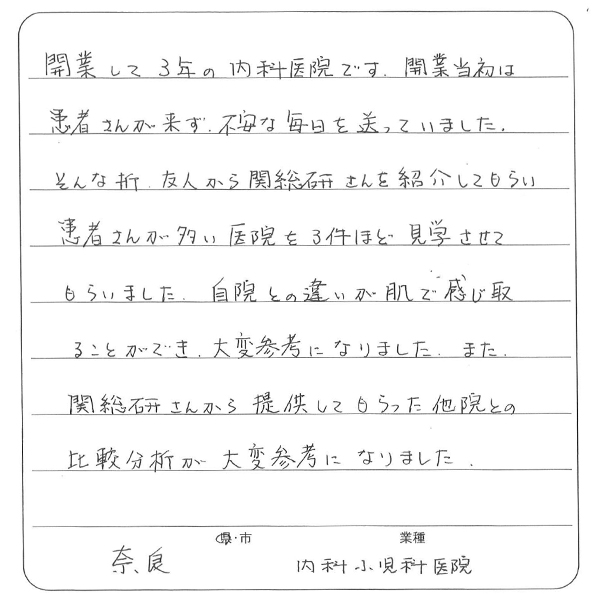 開業して3年の内科医院です.開業当初は
患者さんが来ず.不安な毎日を送っていました.
そんな折.友人から関総研さんを紹介してもらい
患者さんが多い医院を3件ほど見学させて
もらいました.自院との違いが肌で感じ取
ることができ.大変参考になりました.また.
関総研さんから提供してもらった他院との
比較分析が大変参考になりました.
県・市 業種
奈良 内科小児科医院